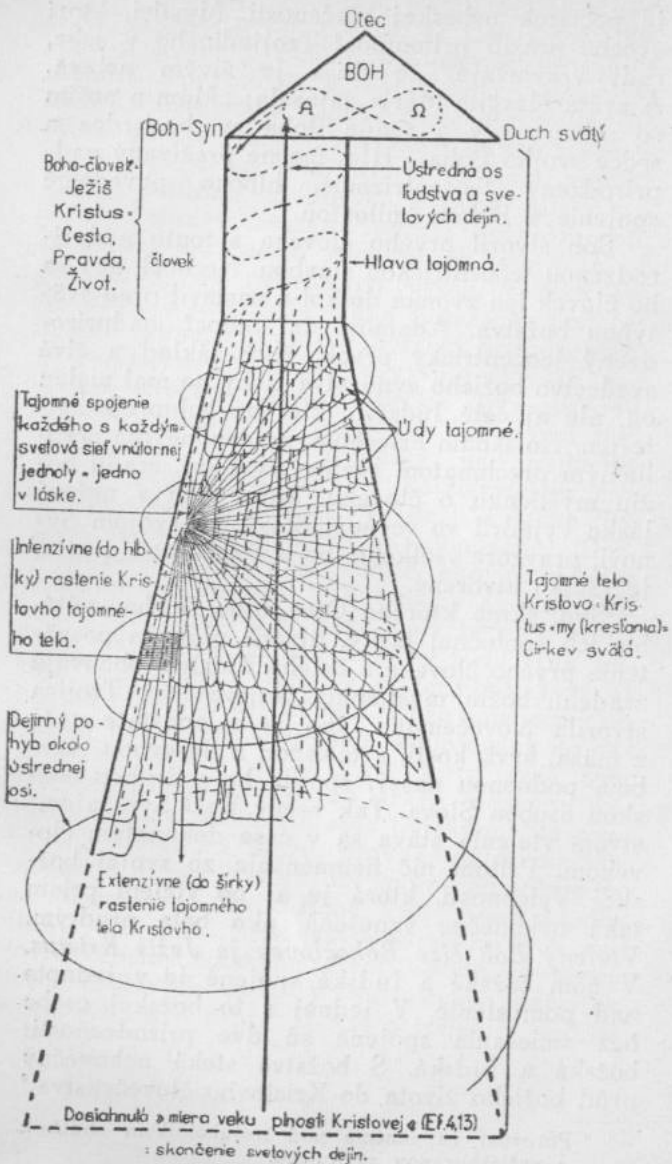 Otec
BOH
Α Ω
Boh-Syn
Duch svätý
Boho-človek-
Ježiš
Kristus=
Cesta,
Pravda,
Život.
človek
Ústredná os
ľudstva a sve-
tových dejín.
Hlava tajomná.
Tajomné spojenie
každého s každým=
svetová sieť vnútornej
jednoty = jedno
v láske.
Údy tajomné.
Intenzívne (do hĺb-
ky) rastenie Kris-
tovho tajomné-
ho tela.
Tajomné telo
Kristovo = Kris-
tus + my (kresťania)=
Cirkev svätá.
Dejinný po-
hyb okolo
ústrednej
osi.
Extenzívne (do šírky)
rastenie tajomného
tela Kristovho.
Dosiahnutá » miera veku plnosti Kristovej « (Ef.4,13)
= skončenie svetových dejín.